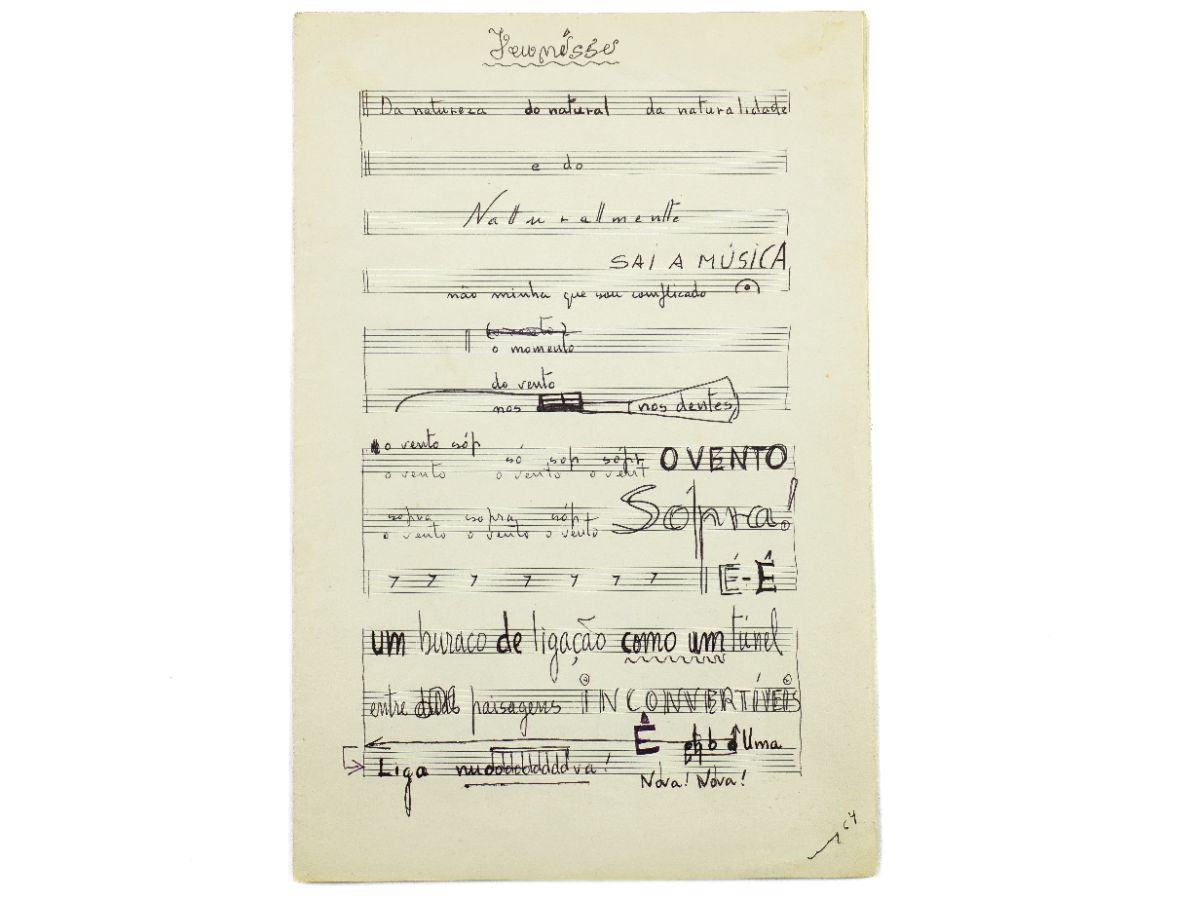 Da natureza do natural da naturalidade
e do
Natturallmentte
SAI A MÚSICA
não minha que sou complicado
o momento
do vento
nos nos dentes
o vento sóp
só sop sópr O VENTO
o vento o vento o vent
sopra sopra sópr Sópra!
o vento o vento o vento
7 7 7 7 7 7 7 É-Ê
um buraco de ligação como um túnel
entre duas paisagens INCONVERTÍVEIS
Ê Uma
Liga nuooooooooova!
Nova! Nova!
64